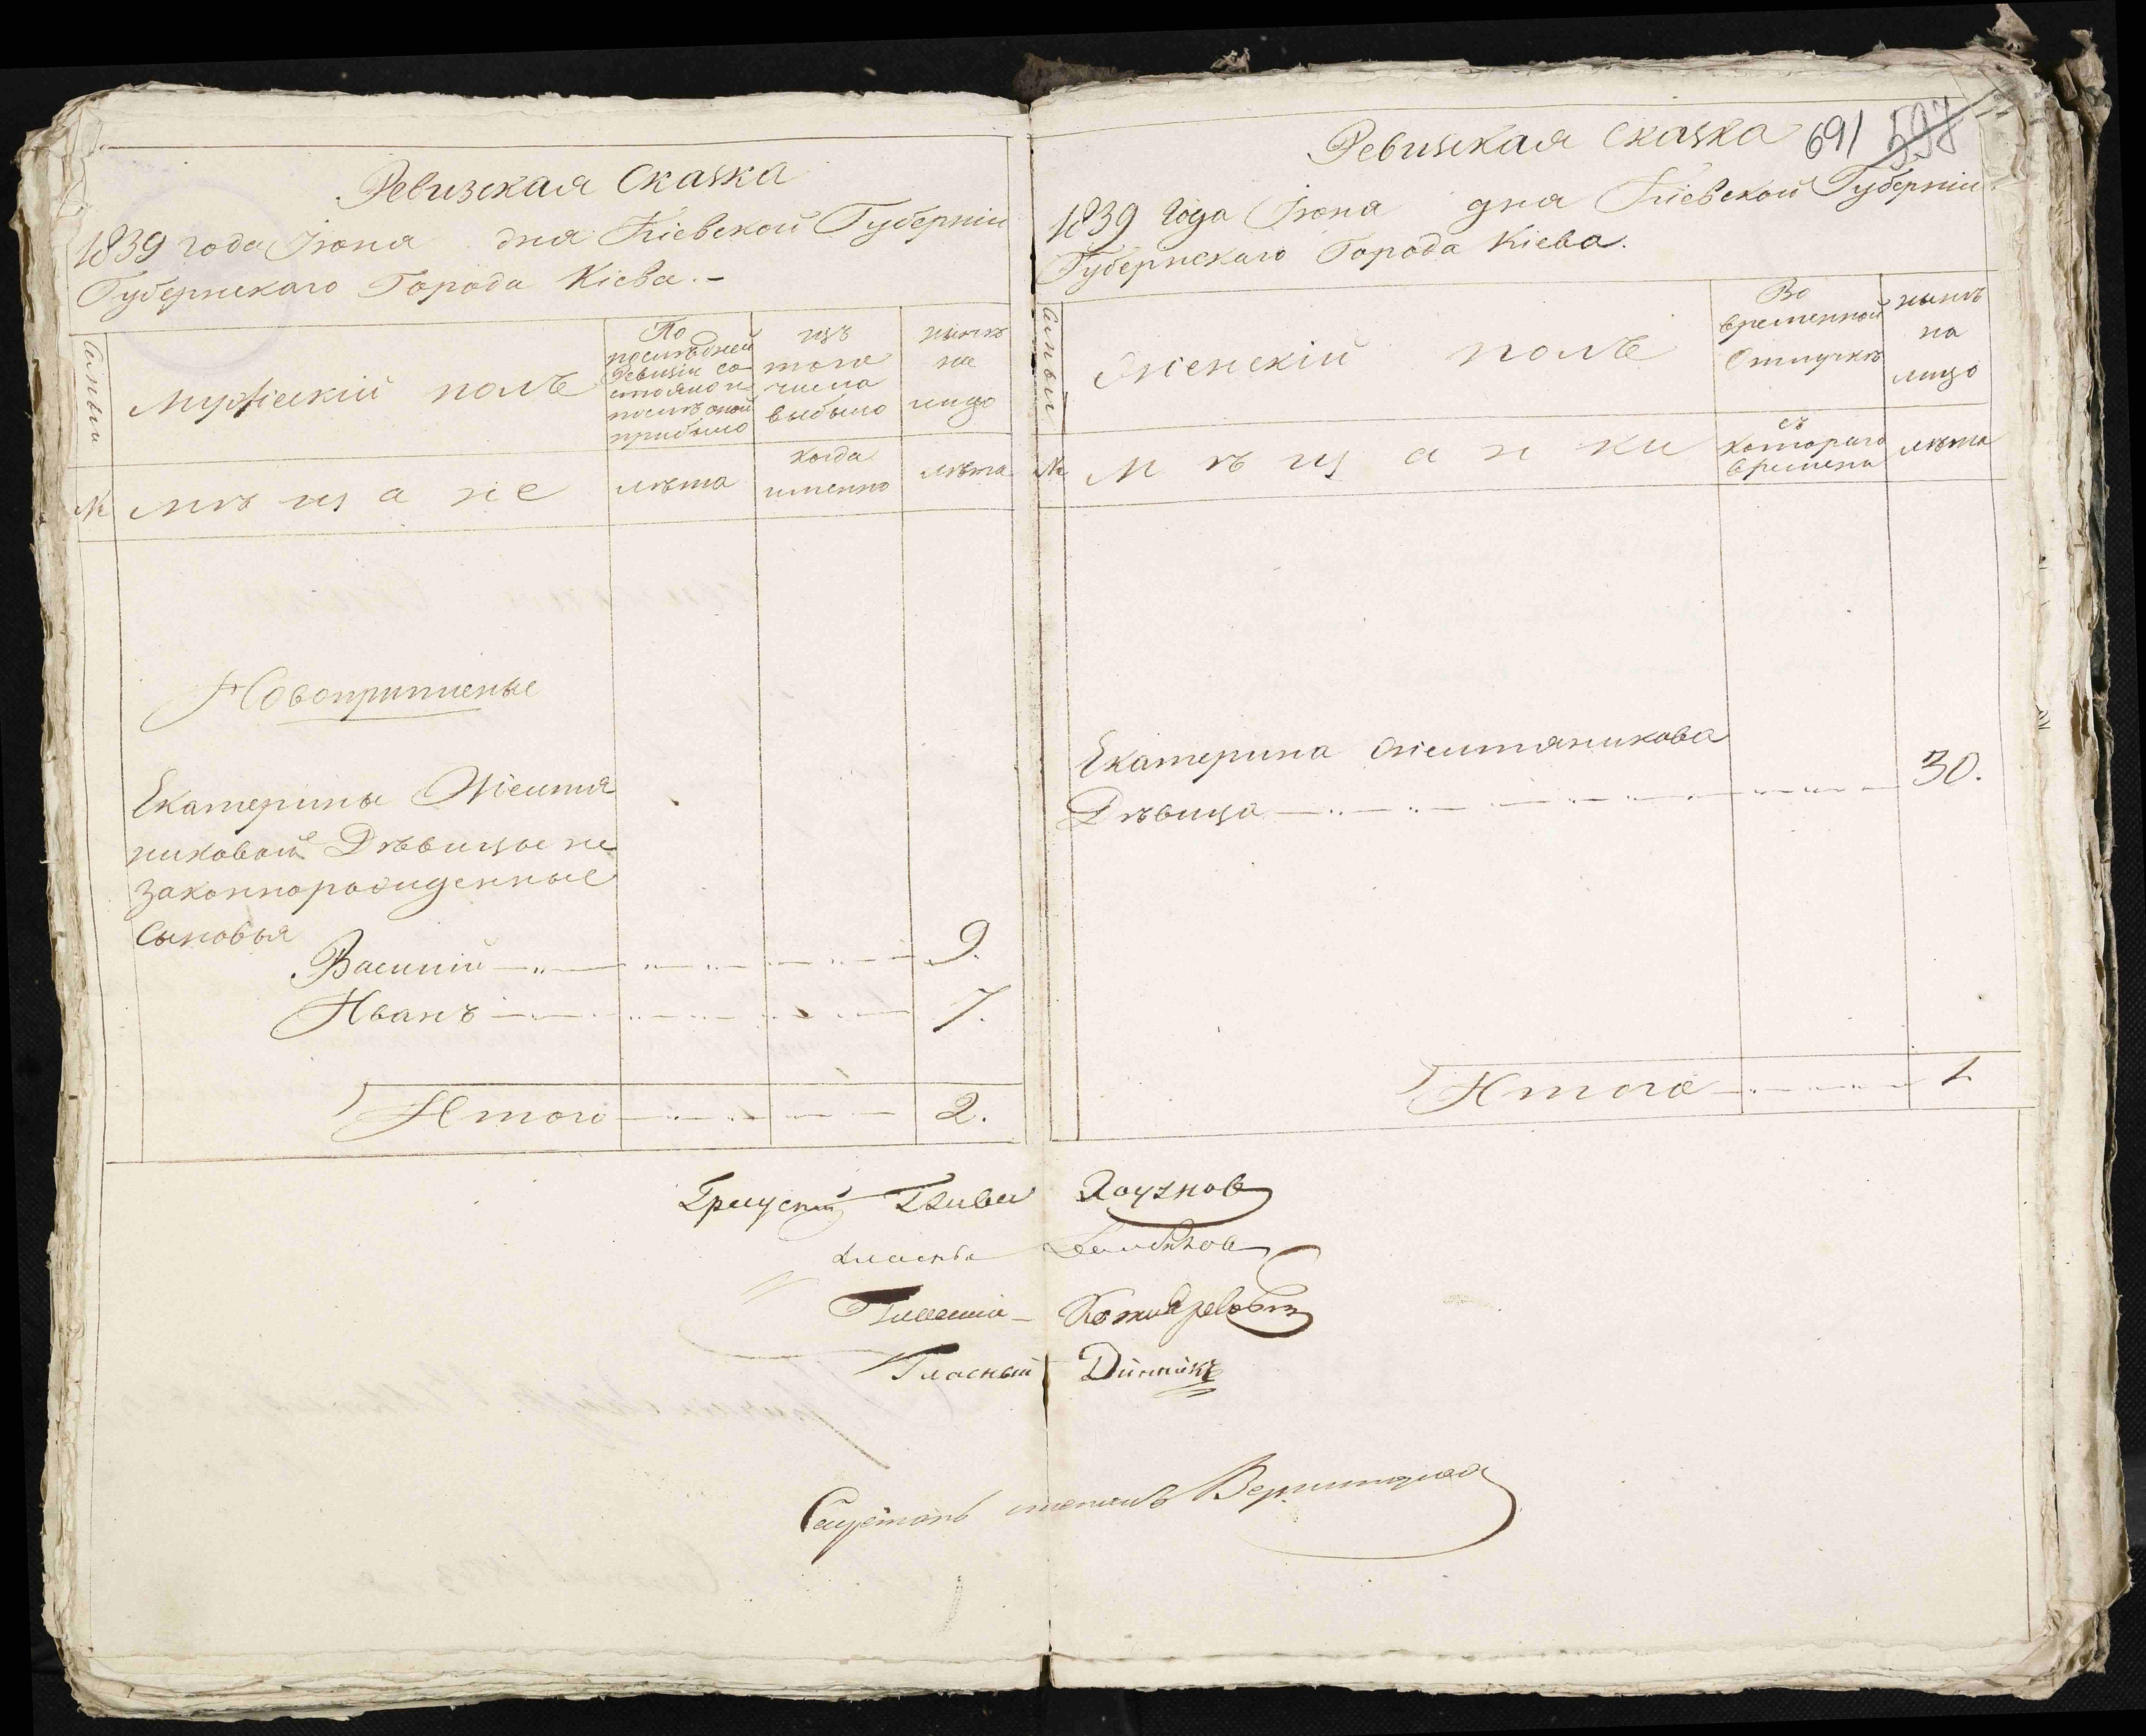 Ревизская Сказка
1839 года Іюня дня Кіевской Губерніи
Губернскаго Города Кіева.-
Семьи
Мужескій полъ
По
послѣдней
Ревизіи со
стояло и
послѣ оной
прибыло
изъ
того
числа
выбыло
нынѣ
на
лицо
№
мѣщане
лѣта
когда
именно
лѣта
Новоприписные
Екатерины Жестя
никовой Дѣвицы не
законнорожденные
сыновья
Василій 9.
Иванъ 7.
Итого 2.
691 597
Ревизская Сказка
1839 года Іюня дня Кіевской Губерніи
Губернскаго Города Кіева.
Семьи
Женскій полъ
Во
временной
Отлучкѣ
нынѣ
на
лицо
№
Мѣщанки
съ
котораго
времени
лѣта
Екатерина Жестяникова
Дѣвица 30.
Итого 1
Гласный Динникъ